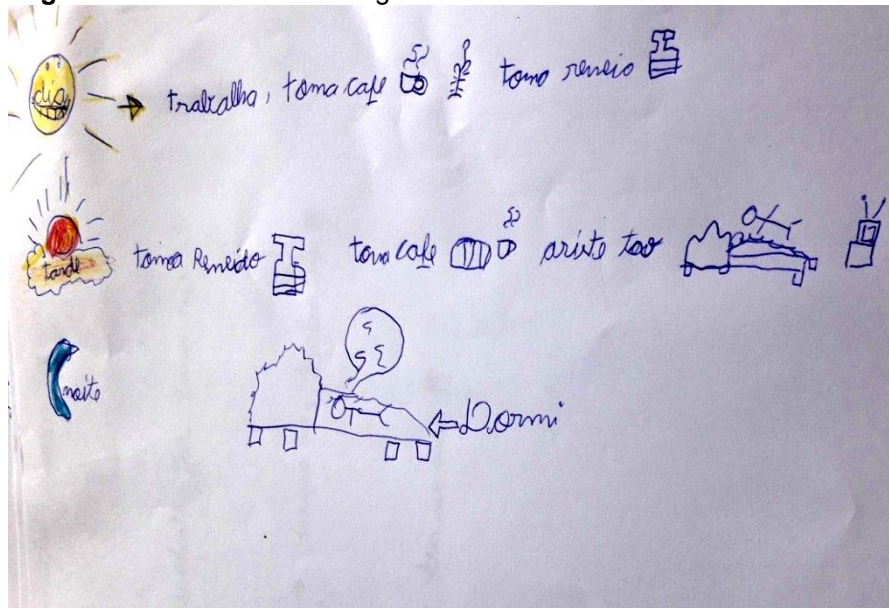 dia
trabalha, toma cafe tomo remeio
tarde
toma Remeido toma cafe arište tav
noite
Dormi